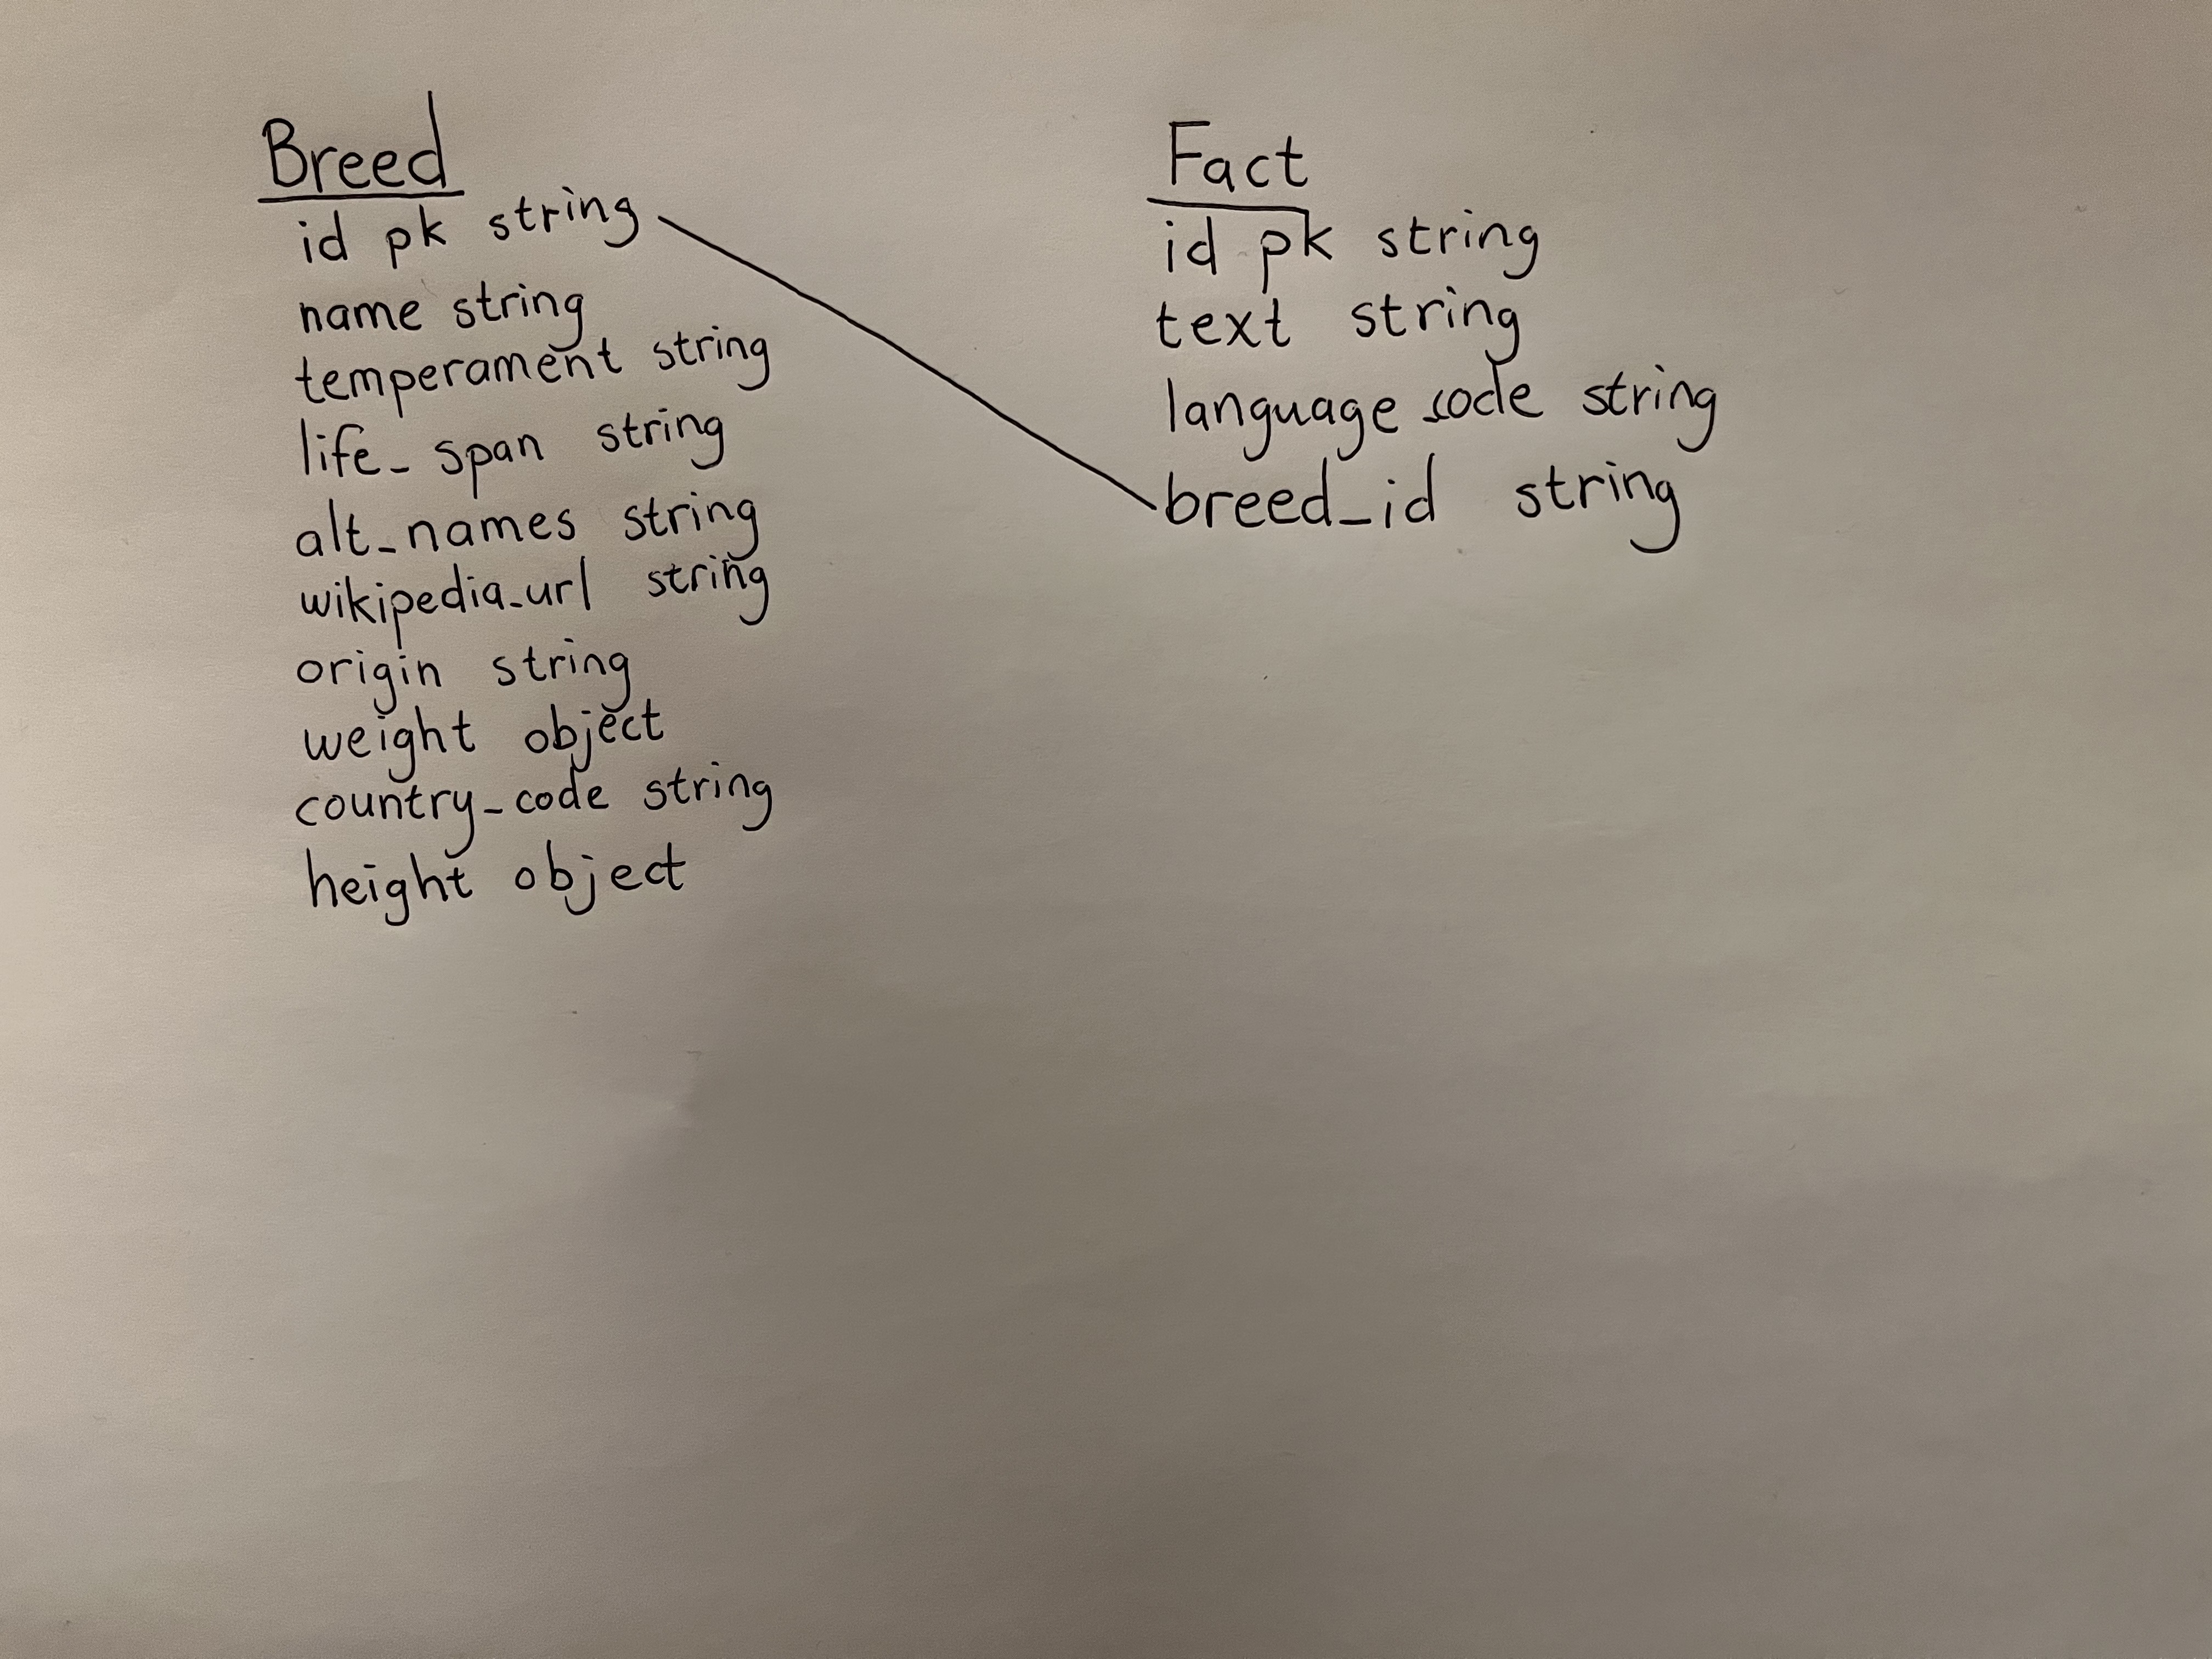 Breed
id pk string
name string
temperament string
life_span string
alt_names string
wikipedia_url string
origin string
weight object
country_code string
height object
Fact
id pk string
text string
language_code string
breed_id string